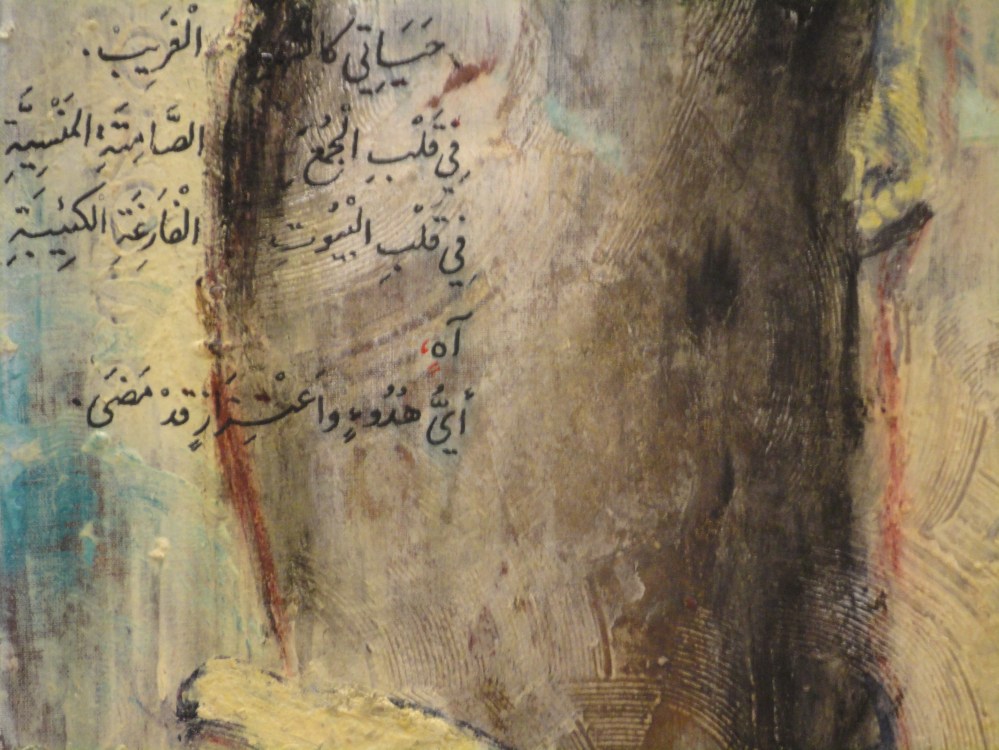 حَيَاتِي الْغَرِيبْ.
فِي قَلْبِ الْجُمَعِ الصَّامِتَةِ الْمَنْسِيَّةِ
فِي قَلْبِ الْبُيُوتِ الْفَارِغَةِ الكَئِيبَةِ
آه،
أَيُّ هُدُوءٍ وَاعْتِزَازٍ قَدْ مَضَى.